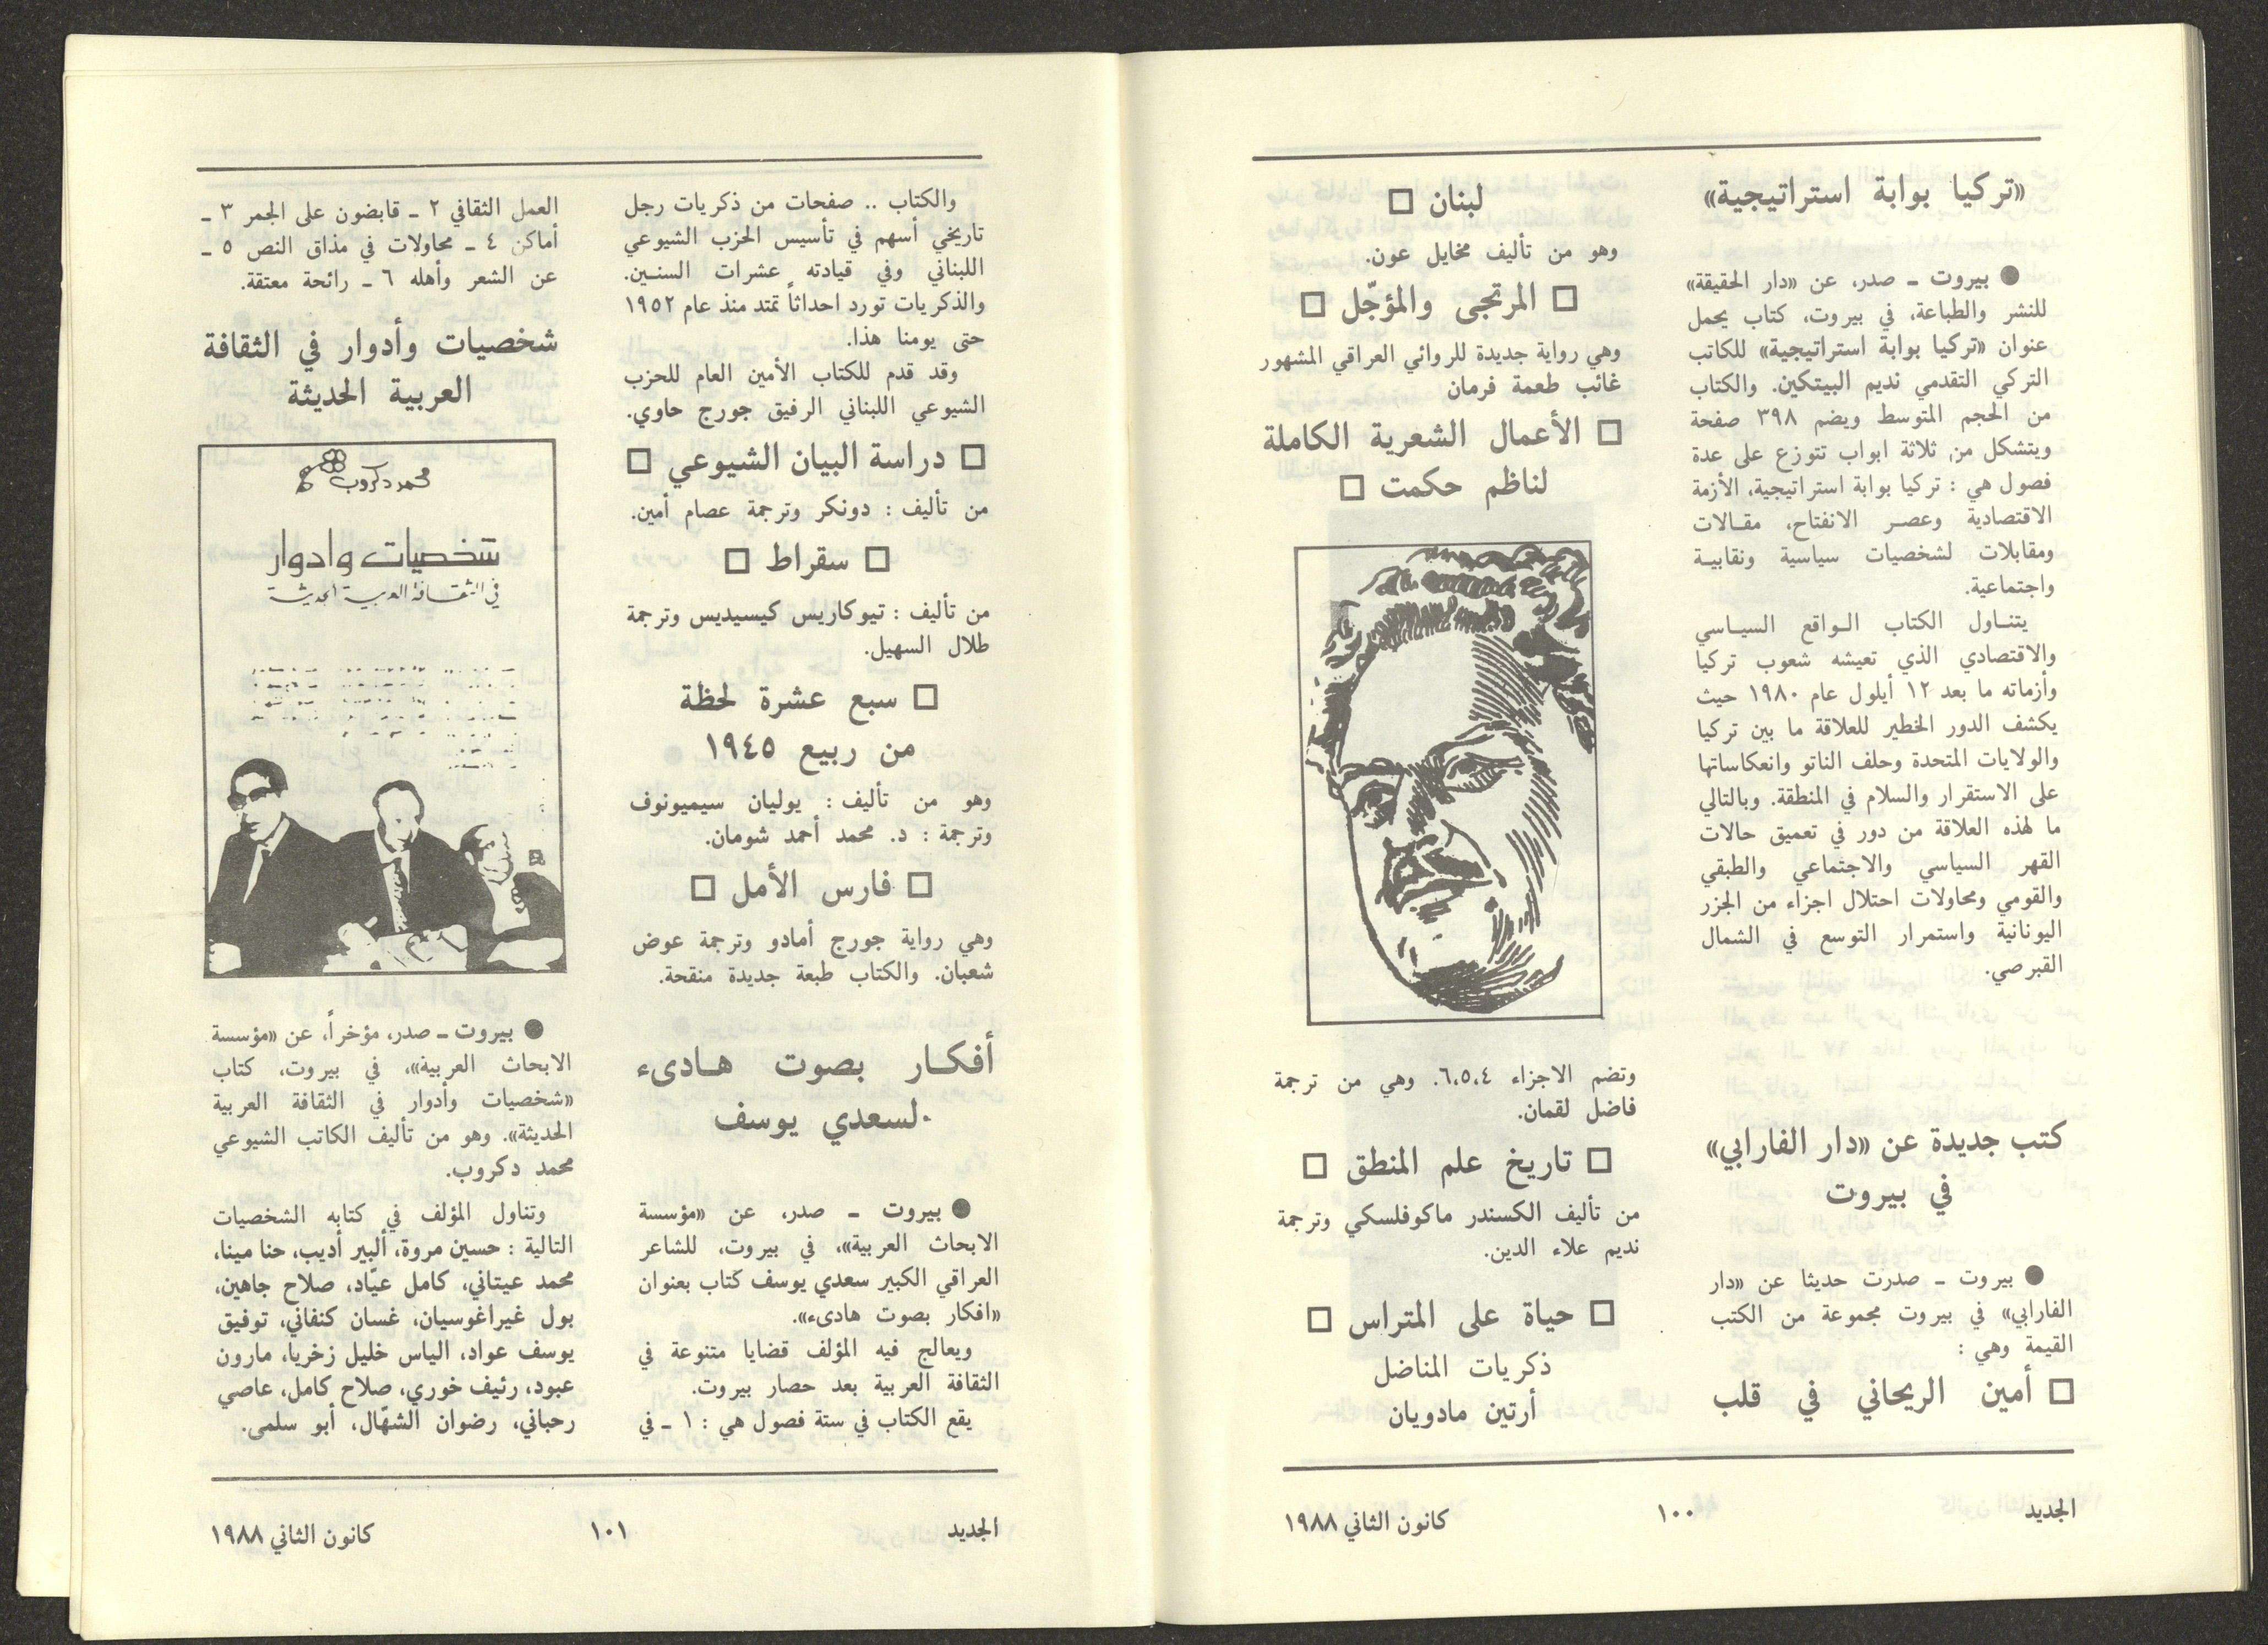 «تركيا بوابة استراتيجية»
● بيروت ـ صدر، عن «دار الحقيقة»
للنشر والطباعة، في بيروت، كتاب يحمل
عنوان «تركيا بوابة استراتيجية» للكاتب
التركي التقدمي نديم البيتكين. والكتاب
من الحجم المتوسط ويضم ٣٩٨ صفحة
ويتشكل من ثلاثة ابواب تتوزع على عدة
فصول هي : تركيا بوابة استراتيجية، الأزمة
الاقتصادية وعصر الانفتاح، مقالات
ومقابلات لشخصيات سياسية ونقابية
واجتماعية.
يتناول الكتاب الواقع السياسي
والاقتصادي الذي تعيشه شعوب تركيا
وأزماته ما بعد ١٢ أيلول عام ١٩٨٠ حيث
يكشف الدور الخطير للعلاقة ما بين تركيا
والولايات المتحدة وحلف الناتو وانعكاساتها
على الاستقرار والسلام في المنطقة. وبالتالي
ما لهذه العلاقة من دور في تعميق حالات
القهر السياسي والاجتماعي والطبقي
والقومي ومحاولات احتلال اجزاء من الجزر
اليونانية واستمرار التوسع في الشمال
القبرصي.
كتب جديدة عن «دار الفارابي»
في بيروت
● بيروت ـ صدرت حديثا عن «دار
الفارابي» في بيروت مجموعة من الكتب
القيمة وهي :
□ أمين الريحاني في قلب
لبنان □
وهو من تأليف مخايل عون.
□ المرتجى والمؤجّل □
وهي رواية جديدة للروائي العراقي المشهور
غائب طعمة فرمان
□ الأعمال الشعرية الكاملة
لناظم حكمت □
وتضم الاجزاء ٦،٥،٤. وهي من ترجمة
فاضل لقمان.
□ تاريخ علم المنطق □
من تأليف الكسندر ماكوفلسكي وترجمة
نديم علاء الدين.
□ حياة على المتراس □
ذكريات المناضل
أرتين مادويان
الجديد
١٠٠
كانون الثاني ١٩٨٨
والكتاب .. صفحات من ذكريات رجل
تاريخي أسهم في تأسيس الحزب الشيوعي
اللبناني وفي قيادته عشرات السنين.
والذكريات تورد احداثاً تمتد منذ عام ١٩٥٢
حتى يومنا هذا.
وقد قدم للكتاب الأمين العام للحزب
الشيوعي اللبناني الرفيق جورج حاوي.
□ دراسة البيان الشيوعي □
من تأليف : دونكر وترجمة عصام أمين.
□ سقراط □
من تأليف : تيوكاريس كيسيديس وترجمة
طلال السهيل.
□ سبع عشرة لحظة
من ربيع ١٩٤٥
وهو من تأليف : يوليان سيميونوف
وترجمة : د. محمد أحمد شومان.
□ فارس الأمل □
وهي رواية جورج أمادو وترجمة عوض
شعبان. والكتاب طبعة جديدة منقحة.
أفكار بصوت هادىء
لسعدي يوسف
● بيروت ـ صدر، عن «مؤسسة
الابحاث العربية»، في بيروت، للشاعر
العراقي الكبير سعدي يوسف كتاب بعنوان
«افكار بصوت هادىء».
ويعالج فيه المؤلف قضايا متنوعة في
الثقافة العربية بعد حصار بيروت.
يقع الكتاب في ستة فصول هي : ١ ـ في
العمل الثقافي ٢ ـ قابضون على الجمر ٣ ـ
أماكن ٤ ـ محاولات في مذاق النص ٥ ـ
عن الشعر وأهله ٦ ـ رائحة معتقة.
شخصيات وأدوار في الثقافة
العربية الحديثة
محمد دكروب
شخصيات وادوار
في الثقافة العربية الحديثة
● بيروت ـ صدر، مؤخراً، عن «مؤسسة
الابحاث العربية»، في بيروت، كتاب
«شخصيات وأدوار في الثقافة العربية
الحديثة». وهو من تأليف الكاتب الشيوعي
محمد دكروب.
وتناول المؤلف في كتابه الشخصيات
التالية : حسين مروة، ألبير أديب، حنا مينا،
محمد عيتاني، كامل عيّاد، صلاح جاهين،
بول غيراغوسيان، غسان كنفاني، توفيق
يوسف عواد، الياس خليل زخريا، مارون
عبود، رئيف خوري، صلاح كامل، عاصي
رحباني، رضوان الشهّال، أبو سلمى.
الجديد
١٠١
كانون الثاني ١٩٨٨